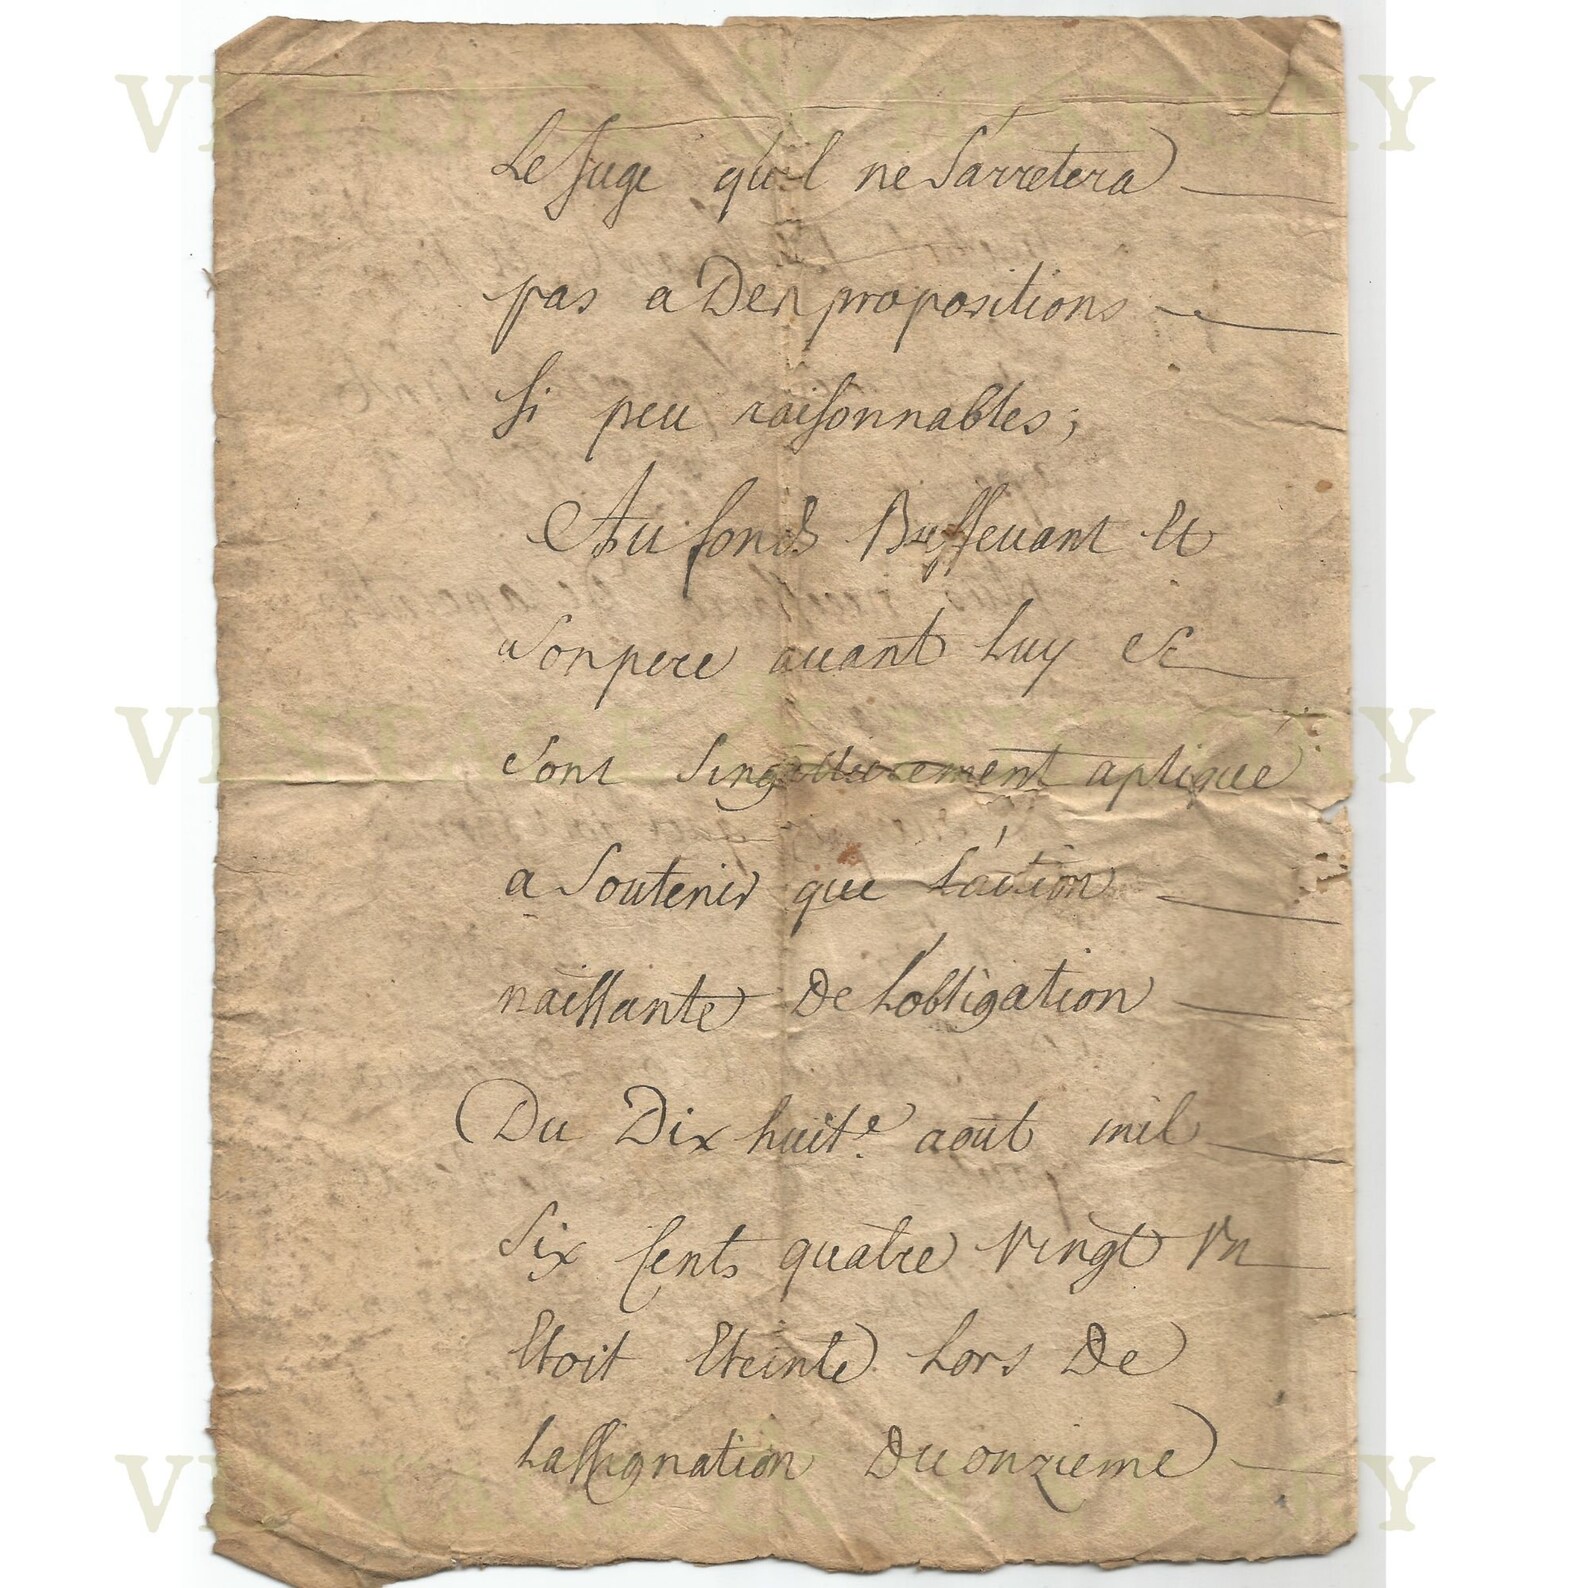 Le Juge qu'il ne S'arretera
pas a Des propositions
Si peu raisonnables;
Au fond Buffevant Et
Son pere avant Luy Se
Sont Singulierement apliqué
a Soutenir que L'action
naissante De L'obligation
Du Dix huit.e aout mil
Six Cents quatre Vingt Un
Etoit Eteinte Lors De
Lassignation Du onzieme